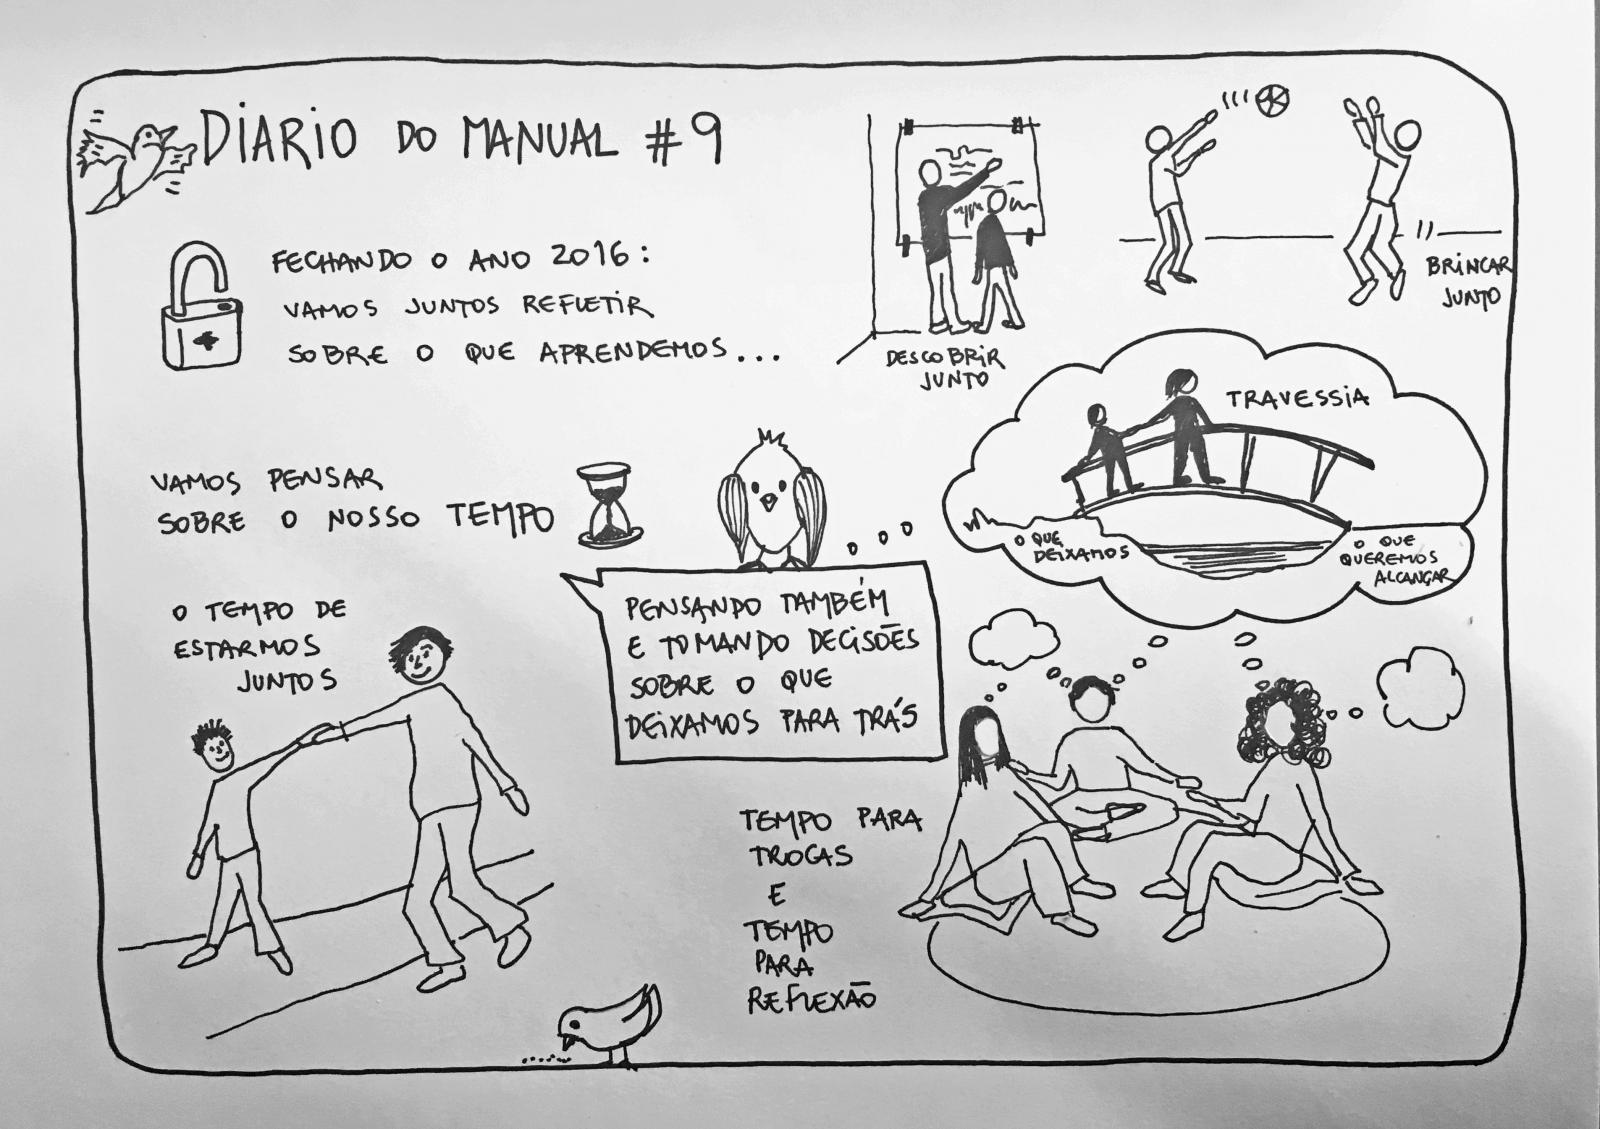 DIARIO DO MANUAL #9
FECHANDO O ANO 2016:
VAMOS JUNTOS REFLETIR
SOBRE O QUE APRENDEMOS...
DESCOBRIR
JUNTO
BRINCAR
JUNTO
VAMOS PENSAR
SOBRE O NOSSO TEMPO
TRAVESSIA
O QUE
DEIXAMOS
O QUE
QUEREMOS
ALCANÇAR
O TEMPO DE
ESTARMOS
JUNTOS
PENSANDO TAMBÉM
E TOMANDO DECISÕES
SOBRE O QUE
DEIXAMOS PARA TRÁS
TEMPO PARA
TROCAS
E
TEMPO
PARA
REFLEXÃO